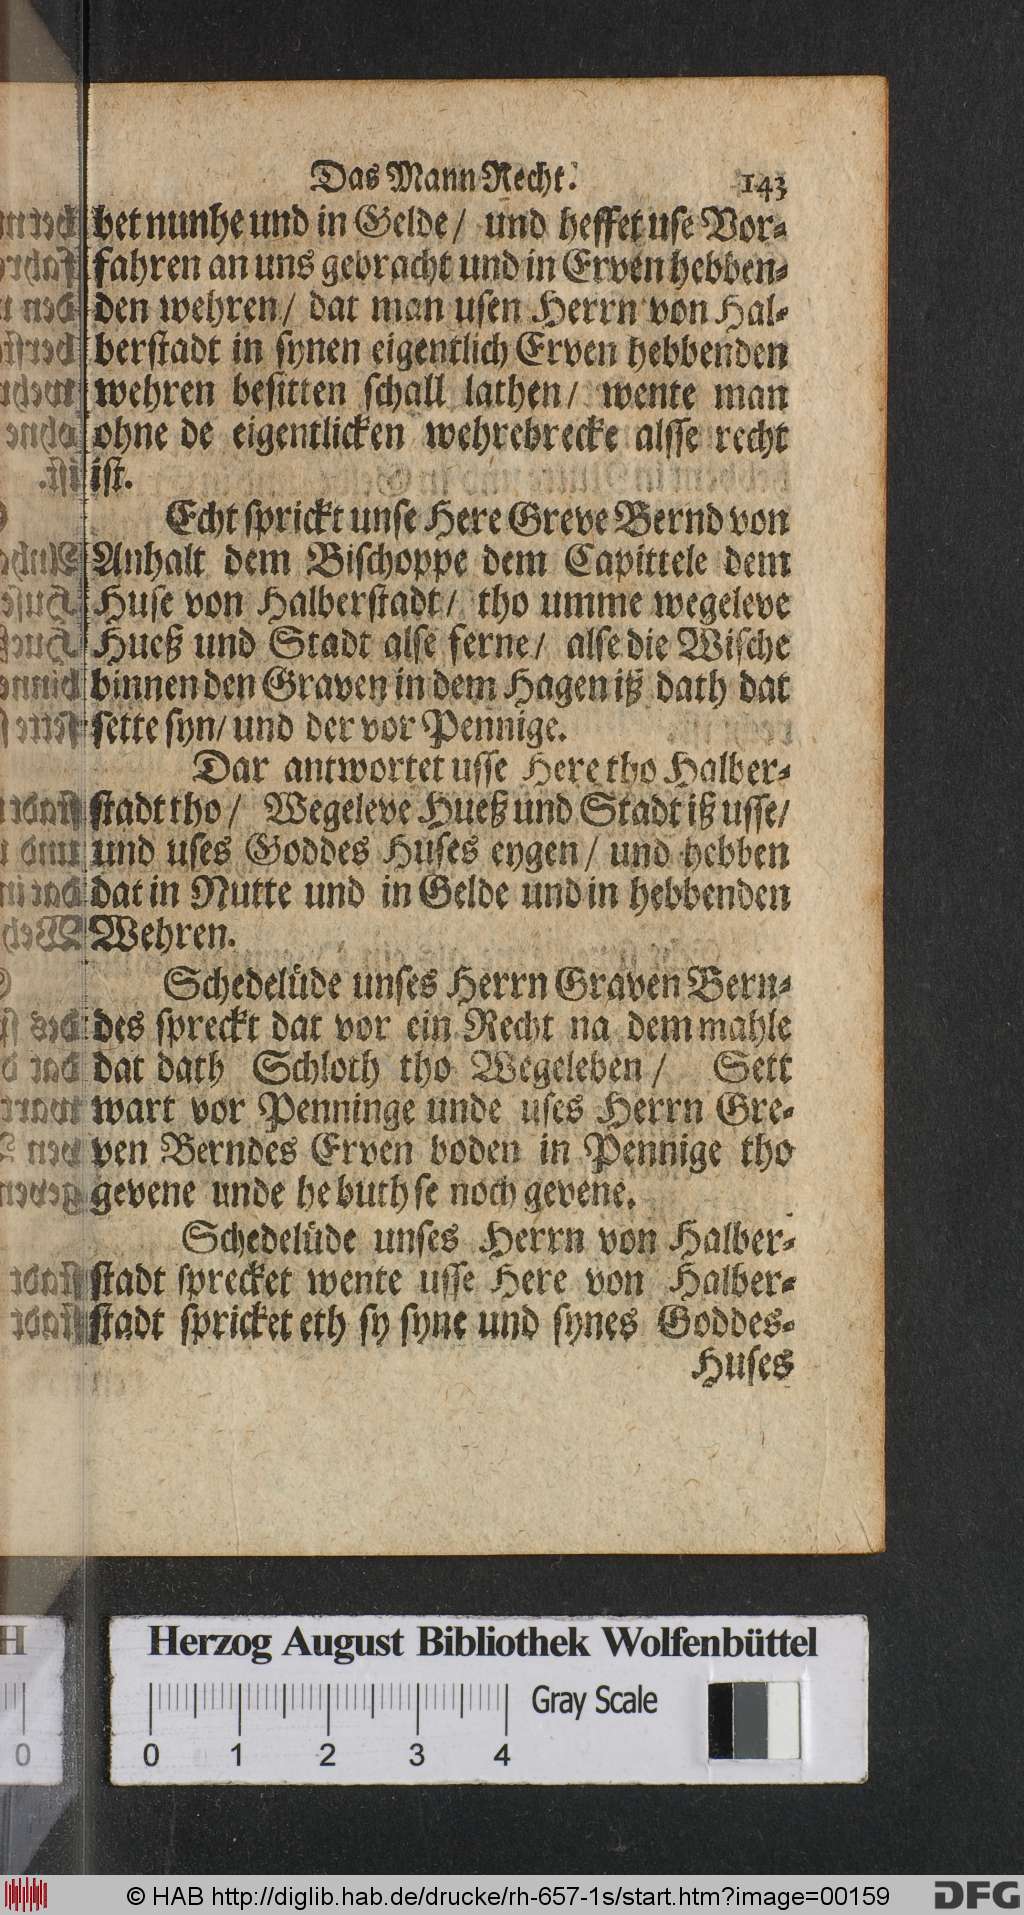 Das Mann Recht. 143
bet nunhe und in Gelde / und heffet use Vor-
fahren an uns gebracht und in Erven hebben-
den wehren / dat man usen Herrn von Hal-
berstadt in synen eigentlich Erven hebbenden
wehren besitten schall lathen / wente man
ohne de eigentlicken wehrebrecke alsse recht
ist.
Echt sprickt unse Here Greve Bernd von
Anhalt dem Bischoppe dem Capittele dem
Huse von Halberstadt / tho umme wegeleve
Hueß und Stadt alse ferne / alse die Wische
binnen den Graven in dem Hagen iß dath dat
sette syn / und der vor Pennige.
Dar antwortet usse Here tho Halber-
stadt tho / Wegeleve Hueß und Stadt iß usse /
und uses Goddes Huses eygen / und hebben
dat in Nutte und in Gelde und in hebbenden
Wehren.
Schedelüde unses Herrn Graven Bern-
des spreckt dat vor ein Recht na dem mahle
dat dath Schloth tho Wegeleben / Sett
wart vor Penninge unde uses Herrn Gre-
ven Berndes Erven boden in Pennige tho
gevene unde he buth se noch gevene.
Schedelüde unses Herrn von Halber-
stadt sprecket wente usse Here von Halber-
stadt spricket eth sy syne und synes Goddes-
Huses
Herzog August Bibliothek Wolfenbüttel
Gray Scale
0 1 2 3 4
© HAB http://diglib.hab.de/drucke/rh-657-1s/start.htm?image=00159
DFG